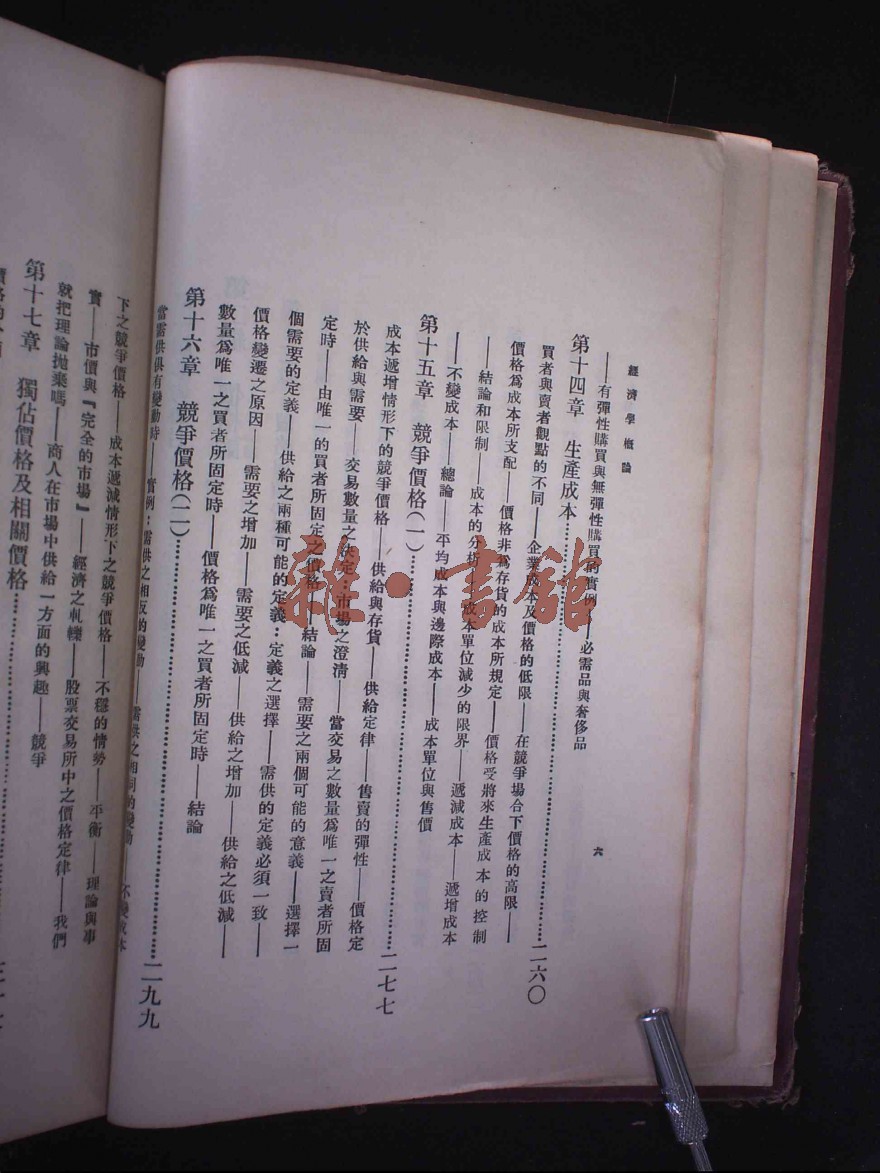 經濟學概論
六
——有彈性購買與無彈性購買的實例——必需品與奢侈品
第十四章 生產成本……二六〇
買者與賣者觀點的不同——企業成本及價格的低限——在競爭場合下價格的高限——
價格爲成本所支配——價格非爲存貨的成本所規定——價格受將來生產成本的控制
——結論和限制——成本的分析——成本單位減少的限界——遞減成本——遞增成本
——不變成本——總論——平均成本與邊際成本——成本單位與售價
第十五章 競爭價格(一)……二七七
成本遞增情形下的競爭價格——供給與存貨——供給定律——售賣的彈性——價格定
於供給與需要——交易數量之決定:市場之澄清——當交易之數量爲唯一之賣者所固
定時——由唯一的買者所固定之價格——結論——需要之兩個可能的意義——選擇一
個需要的定義——供給之兩種可能的定義:定義之選擇——需供的定義必須一致——
價格變遷之原因——需要之增加——需要之低減——供給之增加——供給之低減——
數量爲唯一之買者所固定時——價格爲唯一之買者所固定時——結論
第十六章 競爭價格(二)……二九九
當需供俱有變動時——實例:需供之相反的變動——需供之相同的變動——不變成本
下之競爭價格——成本遞減情形下之競爭價格——不穩的情勢——平衡——理論與事
實——市價與『完全的市場』——經濟之軋轢——股票交易所中之價格定律——我們
就把理論拋棄嗎——商人在市場中供給一方面的興趣——競爭
第十七章 獨佔價格及相關價格……
雜·書館